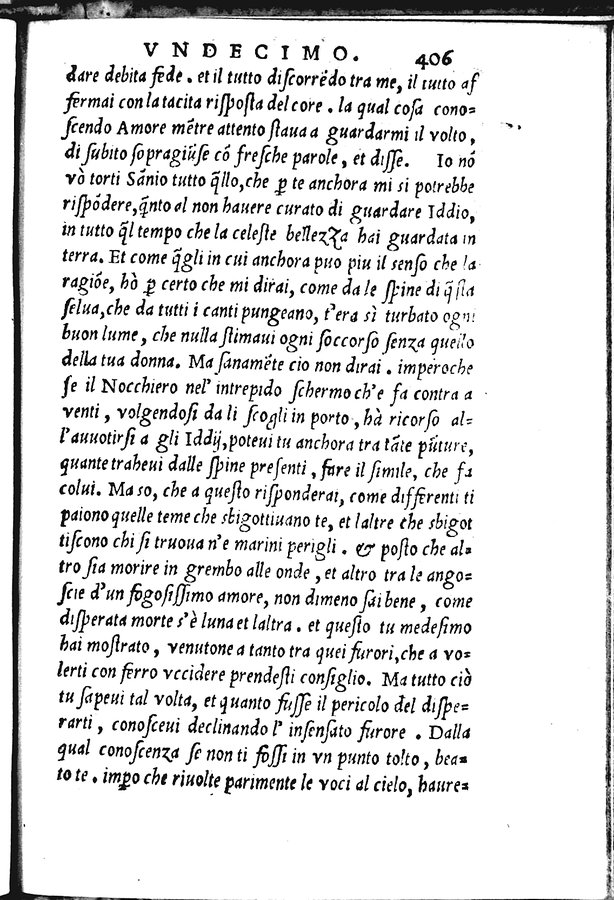 VNDECIMO. 406
dare debita fede. et il tutto diſcorrẽdo tra me, il tutto aſ
fermai con la tacita riſpoſta del core. la qual coſa cono=
ſcendo Amore mẽtre attento ſtaua a guardarmi il volto,
di ſubito ſopragiũſe cõ freſche parole, et diſſe. Io nõ
vò torti Sãnio tutto q̃llo, che ꝑ te anchora mi ſi potrebbe
riſpõdere, q̃nto al non hauere curato di guardare Iddio,
in tutto q̃l tempo che la celeſte bellezza hai guardata in
terra. Et come q̃gli in cui anchora puo piu il ſenſo che la
ragiõe, hò ꝑ certo che mi dirai, come da le ſpine di q̃ſta
ſelua, che da tutti i canti pungeano, t'era sì turbato ogni
buon lume, che nulla ſtimaui ogni ſoccorſo ſenza quello
della tua donna. Ma ſanamẽte cio non dirai. imperoche
ſe il Nocchiero nel' intrepido ſchermo ch'e fa contra a
venti, volgendoſi da li ſcogli in porto, hà ricorſo al=
l'auuotirſi a gli Iddij, poteui tu anchora tra tãte pũture,
quante traheui dalle ſpine preſenti, fare il ſimile, che fa
colui. Ma so, che a queſto riſponderai, come differenti ti
paiono quelle teme che sbigottiuano te, et laltre che sbigot
tiſcono chi ſi truoua n'e marini perigli. & poſto che al=
tro ſia morire in grembo alle onde, et altro tra le ango=
ſcie d'un fogoſiſſimo amore, non dimeno ſai bene, come
diſperata morte s'è luna et laltra. et queſto tu medeſimo
hai moſtrato, venutone a tanto tra quei furori, che a vo=
lerti con ferro vccidere prendeſti conſiglio. Ma tutto ciò
tu ſapeui tal volta, et quanto fuſſe il pericolo del diſpe=
rarti, conoſceui declinando l' inſenſato furore. Dalla
qual conoſcenza ſe non ti foſſi in vn punto tolto, bea=
to te. imꝑo che riuolte parimente le voci al cielo, haure=